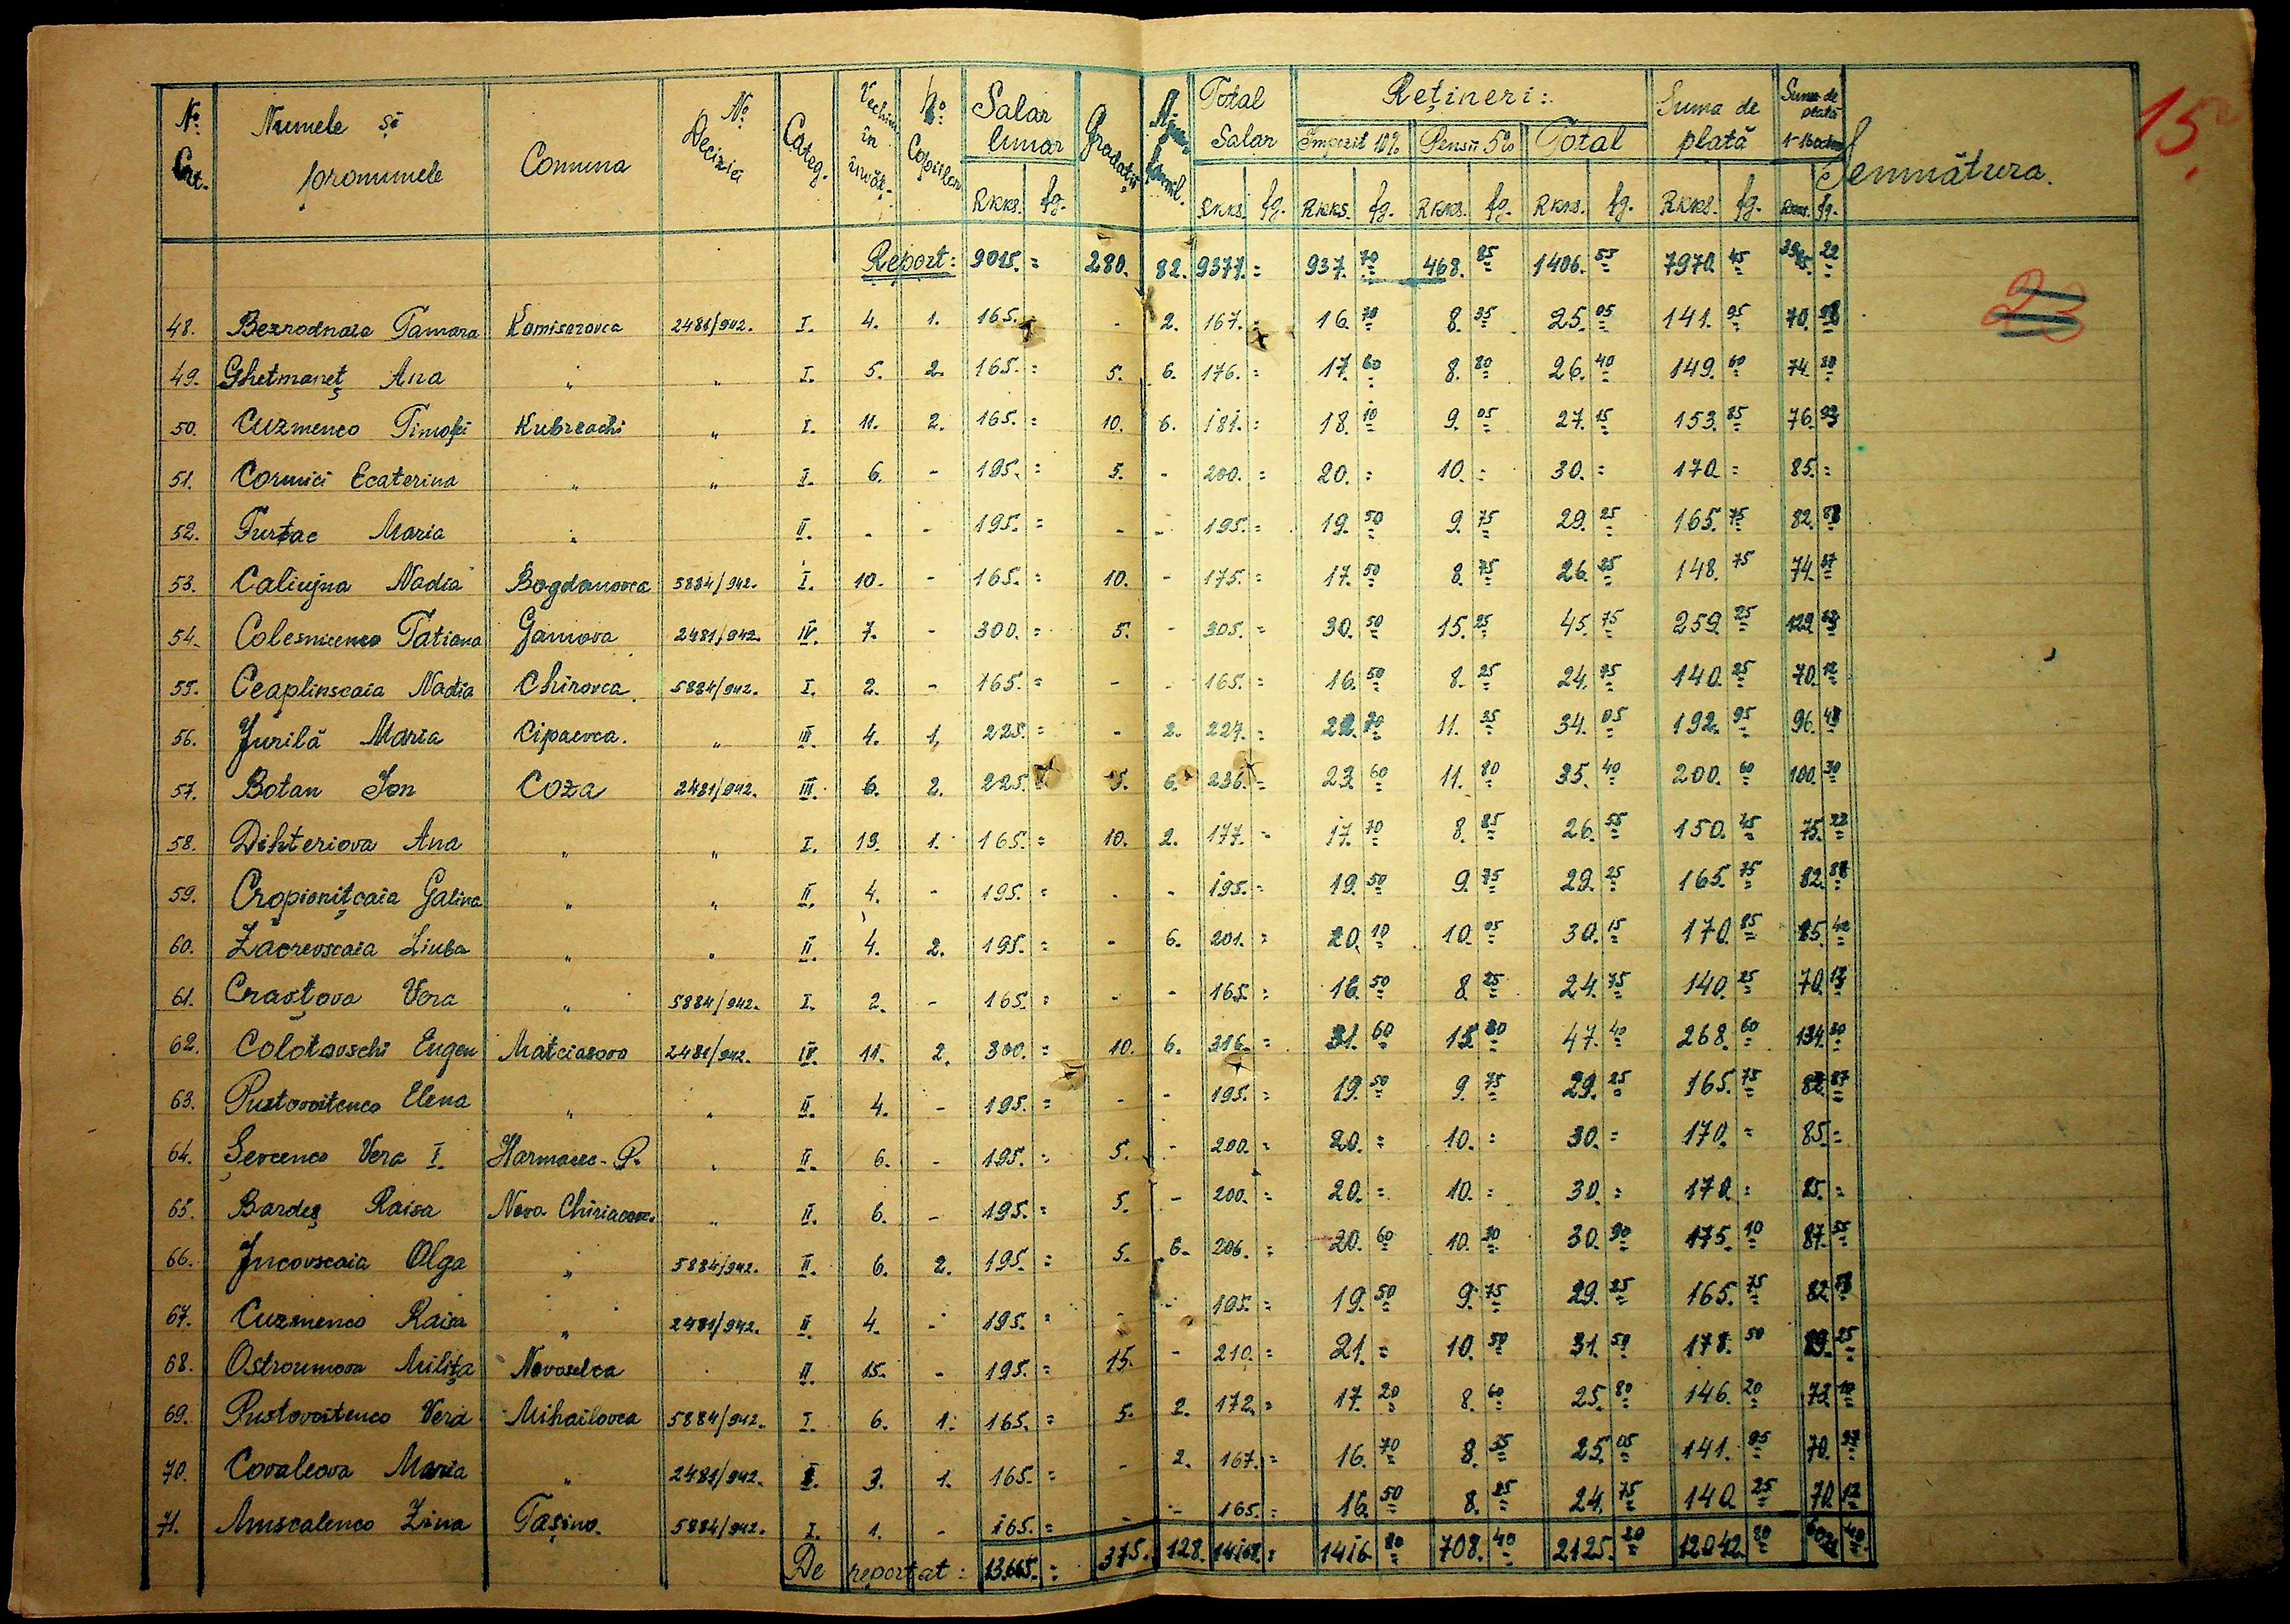 15.
23
No. Crt. | Numele și pronumele | Comuna | No. Deciziei | Categ. | Vechim în învăț. | No. Copiilor | Salar lunar Rkks. fg. | Gradații | famil. | Total Salar Rkks. fg. | Rețineri: Impozit 10% Rkks. fg. | Pensii 5% Rkks. fg. | Total Rkks. fg. | Suma de plată Rkks. fg. | Suma de plată Rkks. fg. | Semnătura.
Report: 9015.= 280. 82. 9377.= 937.70 468.85 1406.55 7970.45 22
48. Beznodnaia Tamara Komisarovca 2481/942. I. 4. 1. 165.= - 2. 167.= 16.70 8.35 25.05 141.95 70.98
49. Ghetmaneț Ana " " I. 5. 2. 165.= 5. 6. 176.= 17.60 8.80 26.40 149.60 74.80
50. Cuzmenco Timofei Kubreachi " I. 11. 2. 165.= 10. 6. 181.= 18.10 9.05 27.15 153.85 76.93
51. Cormici Ecaterina " " II. 6. - 195.= 5. - 200.= 20.= 10.= 30.= 170.= 85.=
52. Furtac Maria " II. - - 195.= - - 195.= 19.50 9.75 29.25 165.75 82.88
53. Caliujna Nadia Bogdanovca 5884/942. I. 10. - 165.= 10. - 175.= 17.50 8.75 26.25 148.75 74.37
54. Colesnicenco Tatiana Gamova 2481/942. IV. 7. - 300.= 5. - 305.= 30.50 15.25 45.75 259.25 129.63
55. Ceaplinscaia Nadia Chirovca 5884/942. I. 2. - 165.= - - 165.= 16.50 8.25 24.75 140.25 70.12
56. Jurilă Maria Cipaevca. " III. 4. 1. 225.= - 2. 227.= 22.70 11.35 34.05 192.95 96.48
57. Botan Ion Coza 2481/942. III. 6. 2. 225.= 5. 6. 236.= 23.60 11.80 35.40 200.60 100.30
58. Dihteriova Ana " " I. 13. 1. 165.= 10. 2. 177.= 17.70 8.85 26.55 150.45 75.22
59. Cropionițcaia Galina " " II. 4. - 195.= - - 195.= 19.50 9.75 29.25 165.75 82.88
60. Zacrevscaia Liuba " " II. 4. 2. 195.= - 6. 201.= 20.10 10.05 30.15 170.85 85.42
61. Cravțova Vera " 5884/942. I. 2. - 165.= - - 165.= 16.50 8.25 24.75 140.25 70.13
62. Colotovschi Eugen Matciasova 2481/942. IV. 11. 2. 300.= 10. 6. 316.= 31.60 15.80 47.40 268.60 134.30
63. Pustovoitenco Elena " " II. 4. - 195.= - - 195.= 19.50 9.75 29.25 165.75 82.87
64. Șevcenco Vera I. Harmacec-P. " II. 6. - 195.= 5. - 200.= 20.= 10.= 30.= 170.= 85.=
65. Bardeș Raisa Novo " II. 6. - 195.= 5. - 200.= 20.= 10.= 30.= 170.= 85.=
66. Jncovscaia Olga " 5884/942. II. 6. 2. 195.= 5. 6. 206.= 20.60 10.30 30.90 175.10 87.55
67. Cuzmenco Raisa " 2481/942. II. 4. - 195.= - - 195.= 19.50 9.75 29.25 165.75 82.88
68. Ostroumova Milița Novoselca II. 15. - 195.= 15. - 210.= 21.= 10.50 31.50 178.50 89.25
69. Pustovoitenco Vera Mihailovca 5884/942. I. 6. 1. 165.= 5. 2. 172.= 17.20 8.60 25.80 146.20 73.10
70. Covaleova Maria " 2481/942. I. 3. 1. 165.= - 2. 167.= 16.70 8.35 25.05 141.95 70.97
71. Muscalenco Zina Tașino. 5884/942. I. 1. - 165.= - - 165.= 16.50 8.25 24.75 140.25 70.12
De reportat: 13.665.= 375. 128. 14168.= 1416.80 708.40 2125.20 12042.80 6021.40